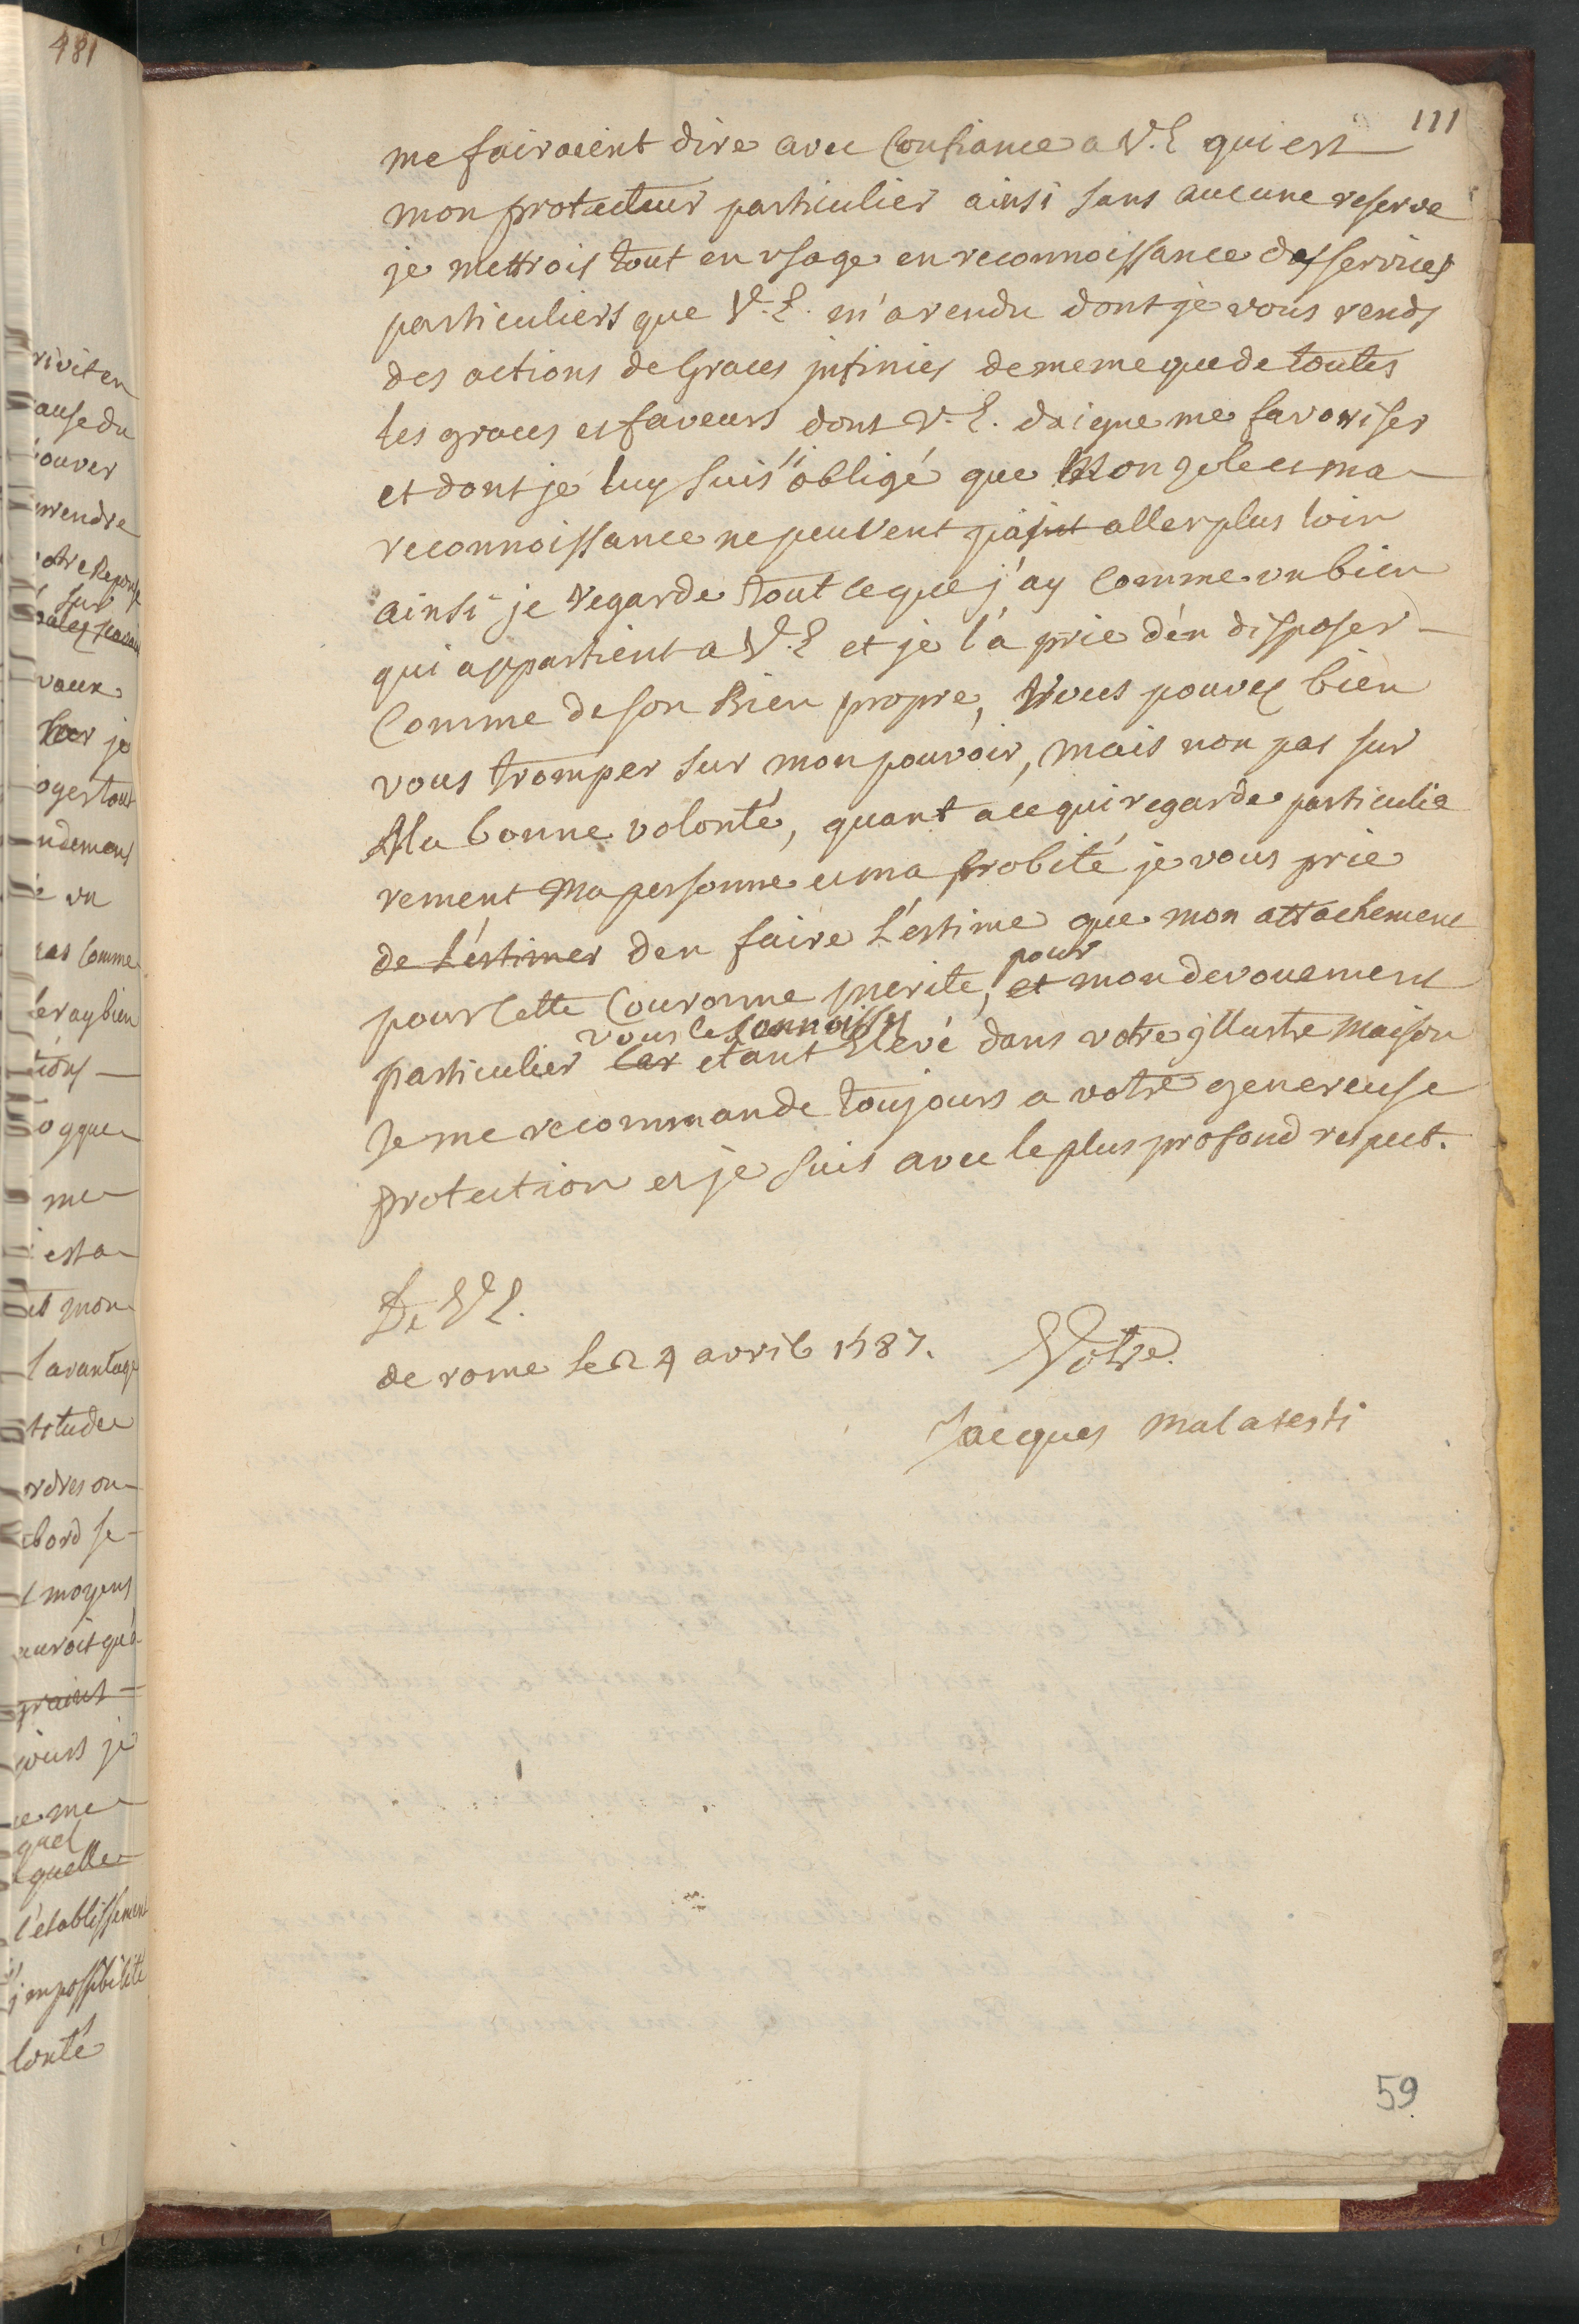 481
111
me fairoient dire avec Confiance a V.E qui est
mon protecteur particulier ainsi sans aucune reserve
je mettrois tout en usage en reconnoissance des services
particuliers que V.E. m'a rendu dont je vous rends
des actions de Graces jnfinies de meme que de toutes
les graces et faveurs dont V.E. daigne me favoriser
et dont je luy suis si obligé que Mon zele et ma
reconnoissance ne peuvent aller plus loin
ainsi je regarde tout ce que j'ay Comme un bien
qui appartient a V.E et je l'a prie d'en disposer
Comme de son Bien propre, vous pouvez bien
vous tromper sur mon pouvoir, mais non pas sur
Ma bonne volonté, quant a ce qui regarde particulie
rement Ma personne et ma probité je vous prie
de L'estimer d'en faire L'estime que mon attachement
pour
pour Cette Couronne merite, et mon devouement
vous le Connoissez
particulier Car etant Elevé dans votre jllustre Maison
Je me recommande toujours a votre genereuse
protection et je suis avec le plus profond respect.
De V E.
de rome le 24 avril 1587. Votre
Jacques Malatesti
59
rivit en
ause du
ouver
rendre
otre Reponse
sur
vaux
je
oger tout
ndement
un
pas Comme
feray bien
tions
ogque
me
est a
et mon
l'avantage
titude
ordres ou
bord se
moyens
auroit qu'a
jours je
e me
quel
quelle
l'etablissement
jmpossibilité
lonté